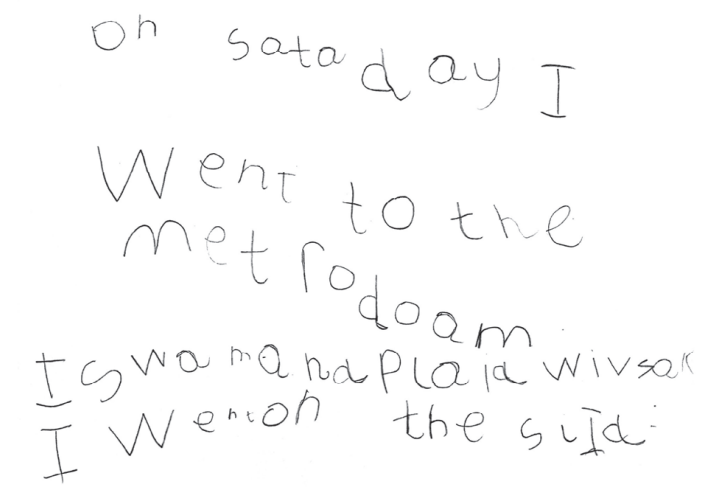 on sataday I
Went to the
metrodoam.
I swam and Plaid wiv sak
I Went on the slId.